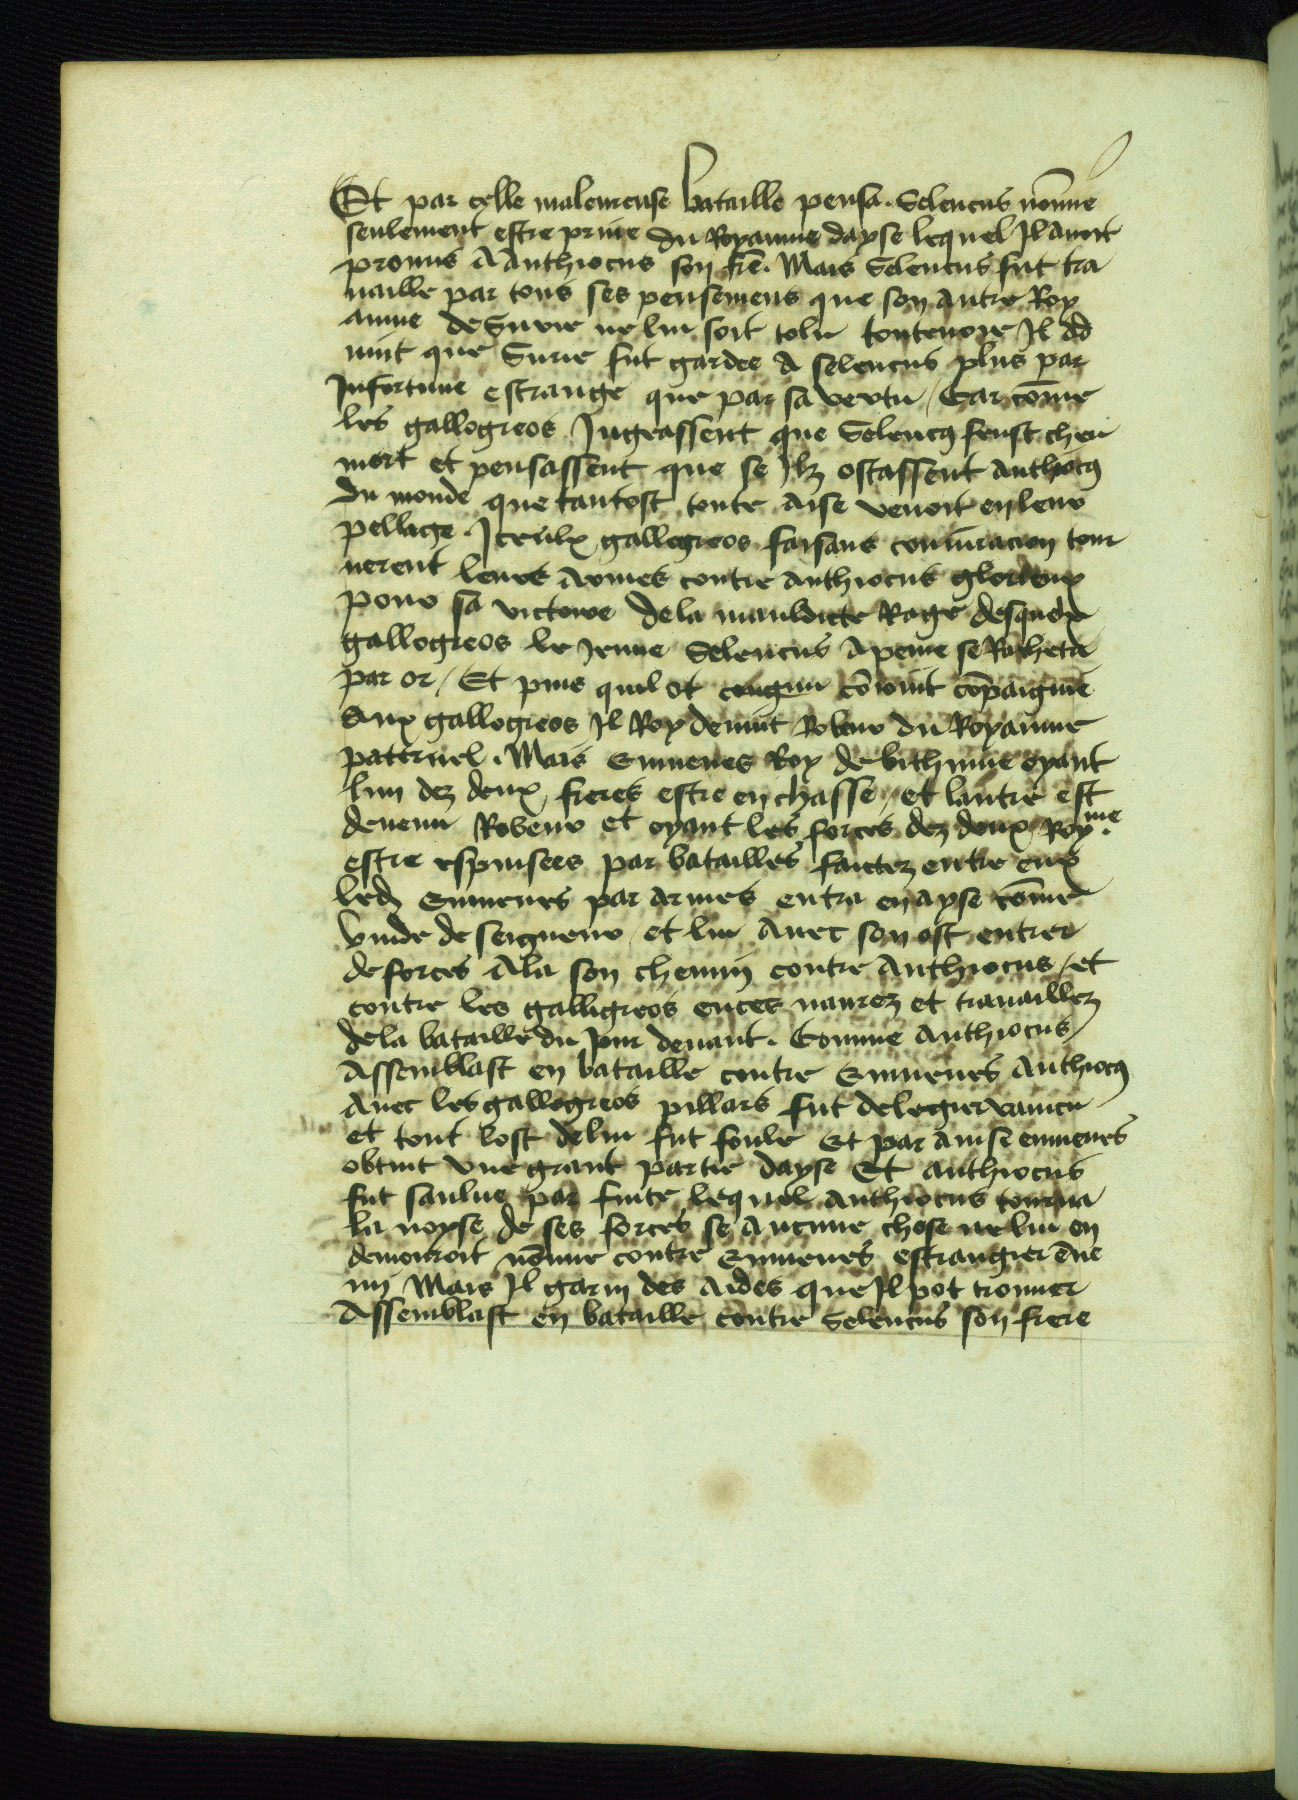 Et par celle maleureuse bataille pensa. Seleucus nōmie
seulement estre priue du Royaume dayse lequel Il auoit
promis A Anthiocus son fre. Mais Seleucus fut tra
uaille par tous ses pensemens que son autre Roy
aume de Surie ne lui soit tolu toutenoie Il ad
uint que Surie fut gardee A seleucus plus par
Infortune estrange que par sa vertu / Car cōme
les gallogreos Iugeassent que Seleucꝰ feust cheu
mort et pensassent que se Ilz ostassent Anthiocꝰ
du monde que tantost toute Aise venoit en leur
pellage. Iceulx gallogreos faisans coniuracion tour
nerent leurs Armes contre Anthiocus glorieux
pour sa victoire de la mauldicte Rage desquelx
gallogreos le Jeune Seleucus A peine se Racheta
par or / Et puis quil ot conioint cōpaignie
Aux gallogreos Il Roy deuint Robeur du Royaume
paternel. Mais Eumenes Roy de bithinie oyant
lun dez deux freres estre enchasse / et lautre est
deuenu Robeur et oyant les forces dez deux Roy.me
estre espuisees par batailles faictez entre eux
ledꝭ Eumenes par armes entra en ayse cōme
Vuide de seigneur / et lui Auec son ost entier
de forces Ala son chemin contre Anthiocus / et
contre les galligreos encer naurez et trauaillez
de la bataille du Jour deuant. Comme Anthiocus
Assemblast en bataille contre Eumenes Anthiocꝰ
Auec les gallogreos pillars fut de legier vaincu
et tout lost de lui fut foule Et par Ainsi eumenes
obtint vne grant partie dayse Et anthiocus
fut saulue par fuite lequel anthiocus tourna
la noyse de ses forces se Aucune chose ne lui en
demouroit nōmie contre Eumenes estrangier ēne
mi Mais Il garni des Aides que Il pot trouuer
Assemblast en bataille contre Seleucus son frere